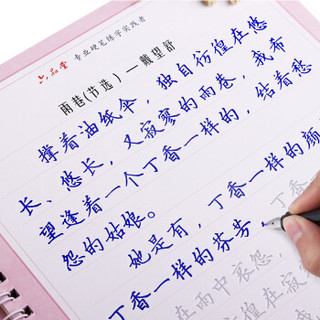 六品堂 专业硬笔练字实践者
雨巷(节选)—戴望舒
撑着油纸伞，独自彷徨在悠
长、悠长，又寂寥的雨巷，我希
望逢着一个丁香一样的，结着愁
怨的姑娘。
她是有，丁香一样的颜
丁香一样的芬芳，丁香
在雨中哀怨，
彷徨在寂寥